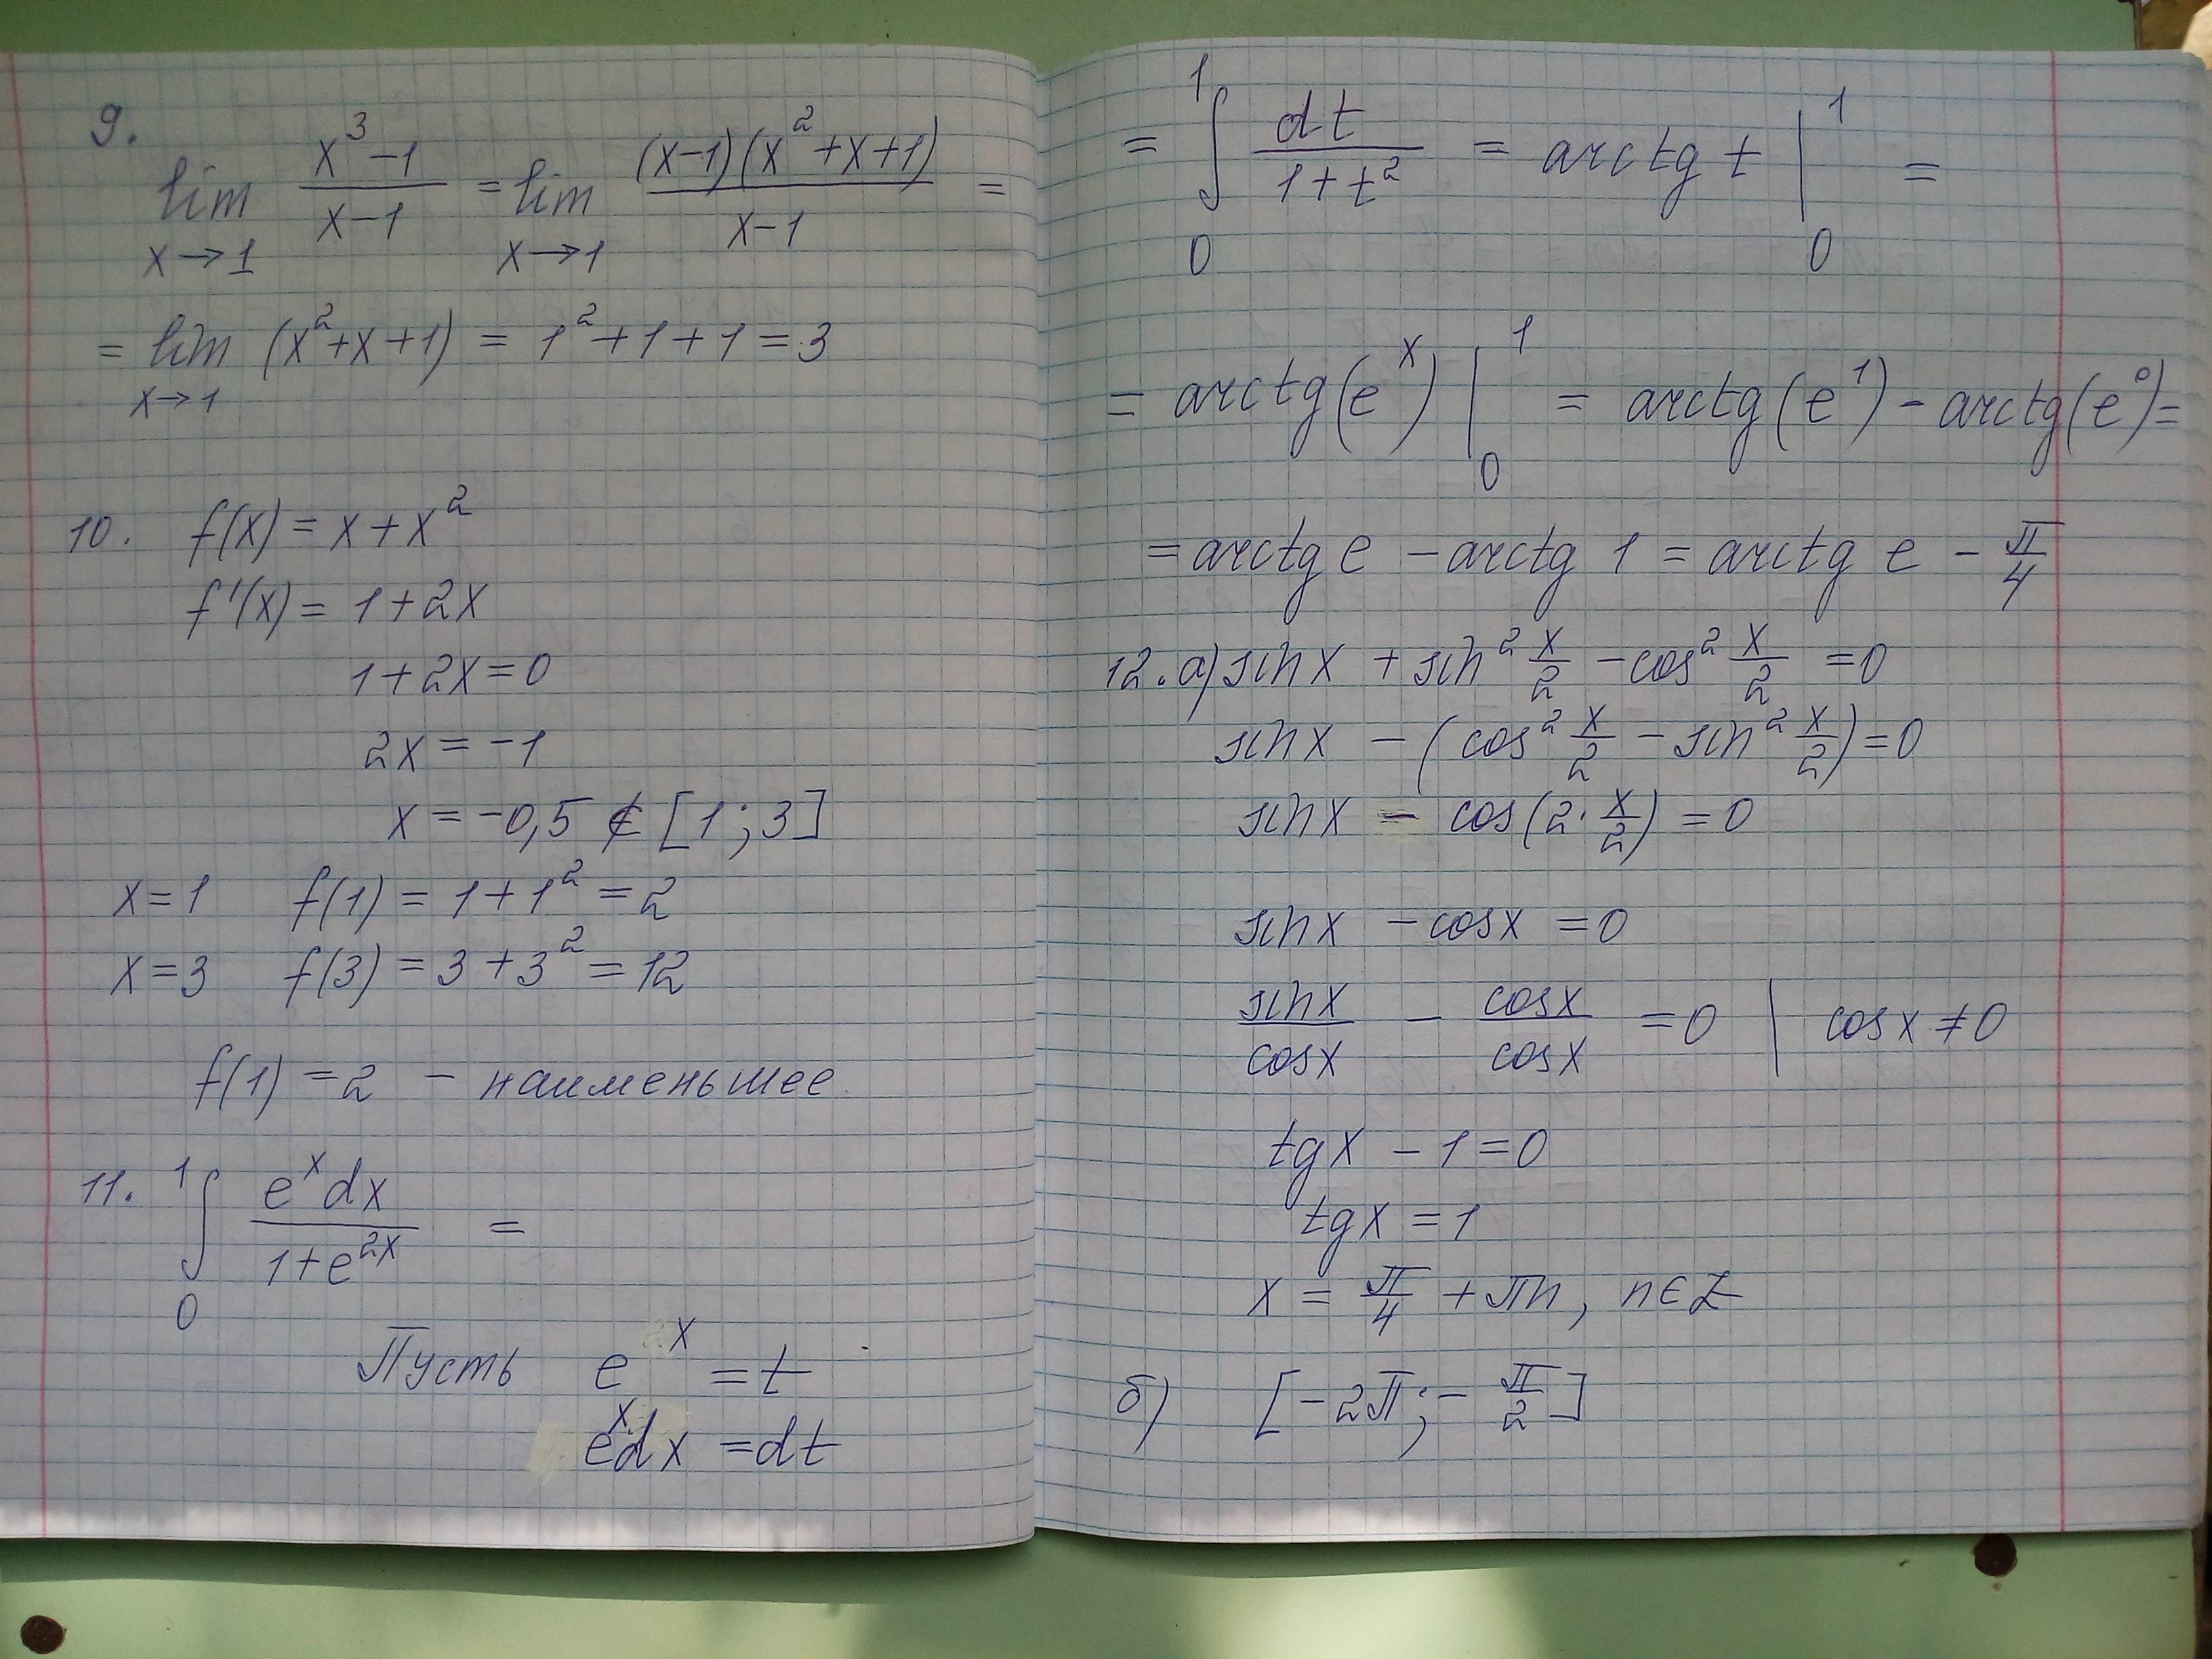 9.
lim x→1 (x³-1)/(x-1) = lim x→1 ((x-1)(x²+x+1))/(x-1) =
= lim x→1 (x²+x+1) = 1²+1+1=3
10. f(x) = x+x²
f'(x) = 1+2x
1+2x=0
2x = -1
x = -0,5 ∉ [1;3]
x=1 f(1) = 1+1² = 2
x=3 f(3) = 3+3² = 12
f(1) = 2 - наименьшее.
11. ∫₀¹ (eˣdx)/(1+e²ˣ) =
Пусть eˣ = t
eˣdx = dt
= ∫₀¹ dt/(1+t²) = arctg t |₀¹ =
= arctg(eˣ) |₀¹ = arctg(e¹) - arctg(e⁰) =
= arctg e - arctg 1 = arctg e - π/4
12. а) sin x + sin² x/2 - cos² x/2 = 0
sin x - (cos² x/2 - sin² x/2) = 0
sin x - cos(2·x/2) = 0
sin x - cos x = 0
sin x/cos x - cos x/cos x = 0 | cos x ≠ 0
tg x - 1 = 0
tg x = 1
x = π/4 + πn, n∈Z
б) [-2π; -π/2]